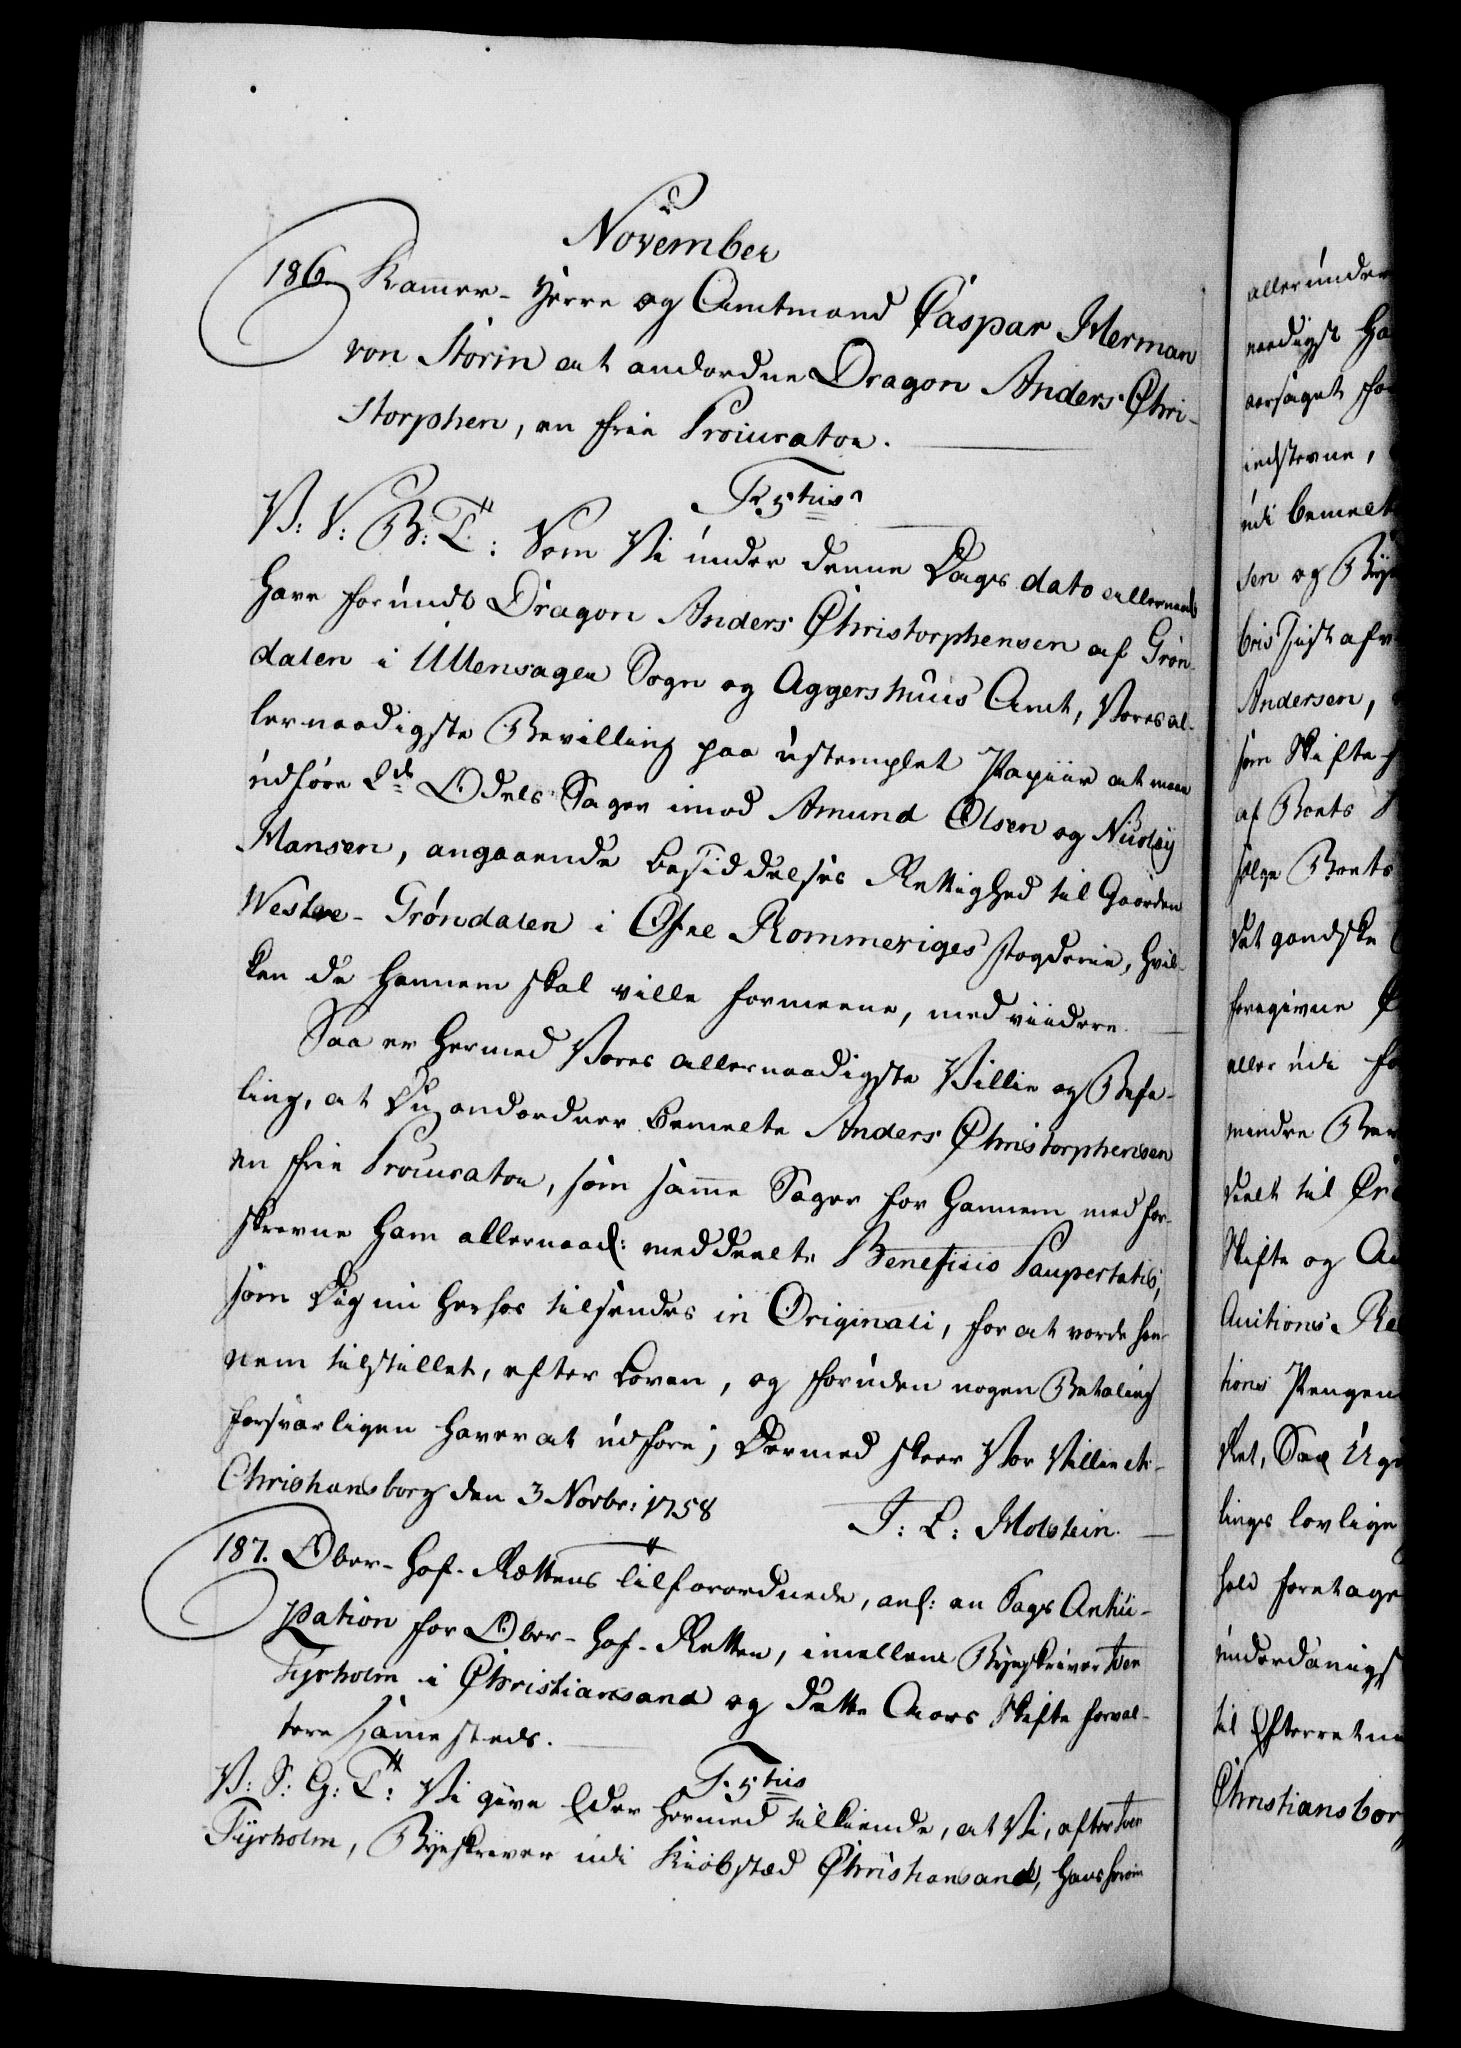 November
186. Kammer-Herre og Amtmand Caspar Herman
von Storm at andordne Dragon Anders Chri-
storphen, en frie Procurator.
F. 5tus
V: V: B: T: Som Vi under denne Dags dato allernaad
have forundt Dragon Anders Christorphensen af Grøn-
dalen i Ullensager Sogn og Aggershuus Amt, Vores al-
lernaadigste Bevilling paa ustemplet Papiir at maae
udføre 2de Odels Sager imod Amund Olsen og
Hansen, angaaende besiddelses Rettighed til Gaarden
Westre-Grøndalen i Øfre Rommeriges fogderie, hvil-
ken de hannem skal ville formeene, med viidere.
Saa er hermed Vores allernaadigste Villie og Befa-
ling, at Du andordner bemelte Anders Christorphensen
en frie Procurator, som samme Sager for hannem med for-
skrevne ham allernaad: meddeelte Beneficio Paupertatis,
som Dig nu herhos tilsendes in Originali, for at vorde han-
nem tilstillet, efter Loven, og foruden nogen Betaling
forsvarligen haver at udføre; Dermed skeer Vor Villie etc.
Christiansborg den 3 Novbr: 1758
J: L: Holstein.
187. Ober-Hof-Rettens Tilforordnede, anl: en Sags Antici-
pation for Ober-Hof-Retten, imellem Byeskriver Iver
Tyrholm i Christiansand og dette Aars Skifte forval-
tere sammesteds.
F. 5tus
V: S: G: T: Vi give Eder hermed tilkiende, at Vi, efter Iver
Tyrholm, Byeskriver udi Kiøbstæd Christiansand, hans herom
allerunder
naadigst ha
aarsaget for
indstevne,
udi bemelte
sen og Bye
bris sist afv
Andersen,
som Skifte-f
af Boets
følge Boets
det gandske
foregivne
eller udi fo
mindre
deelt til
Skifte og Au
Auctions Re
tions Pengen
det, Saa
lings lovlige
hold foretage
underdanigst
til Efterretni
Christiansborg